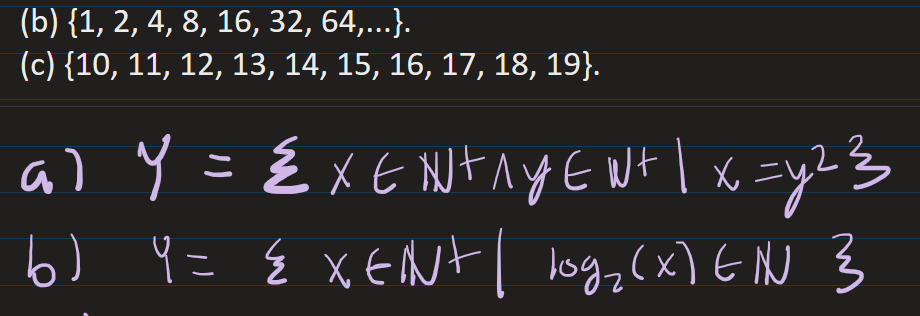 (b) {1, 2, 4, 8, 16, 32, 64,...}.
(c) {10, 11, 12, 13, 14, 15, 16, 17, 18, 19}.
a) Y = { x ∈ ℕ+ ∧ y ∈ ℕ+ | x = y² }
b) Y = { x ∈ ℕ+ | log₂(x) ∈ ℕ }